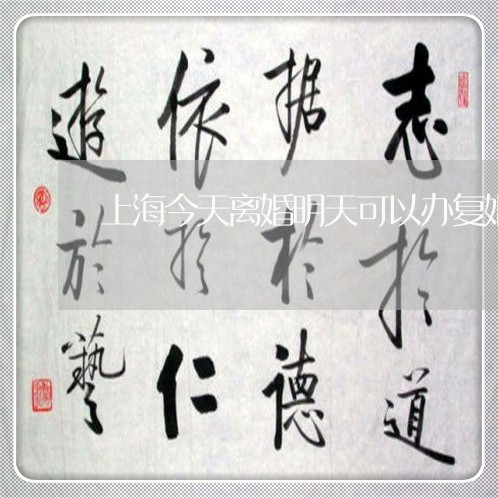 志扵道
据於德
依扵仁
遊於藝
上海今天离婚明天可以办复